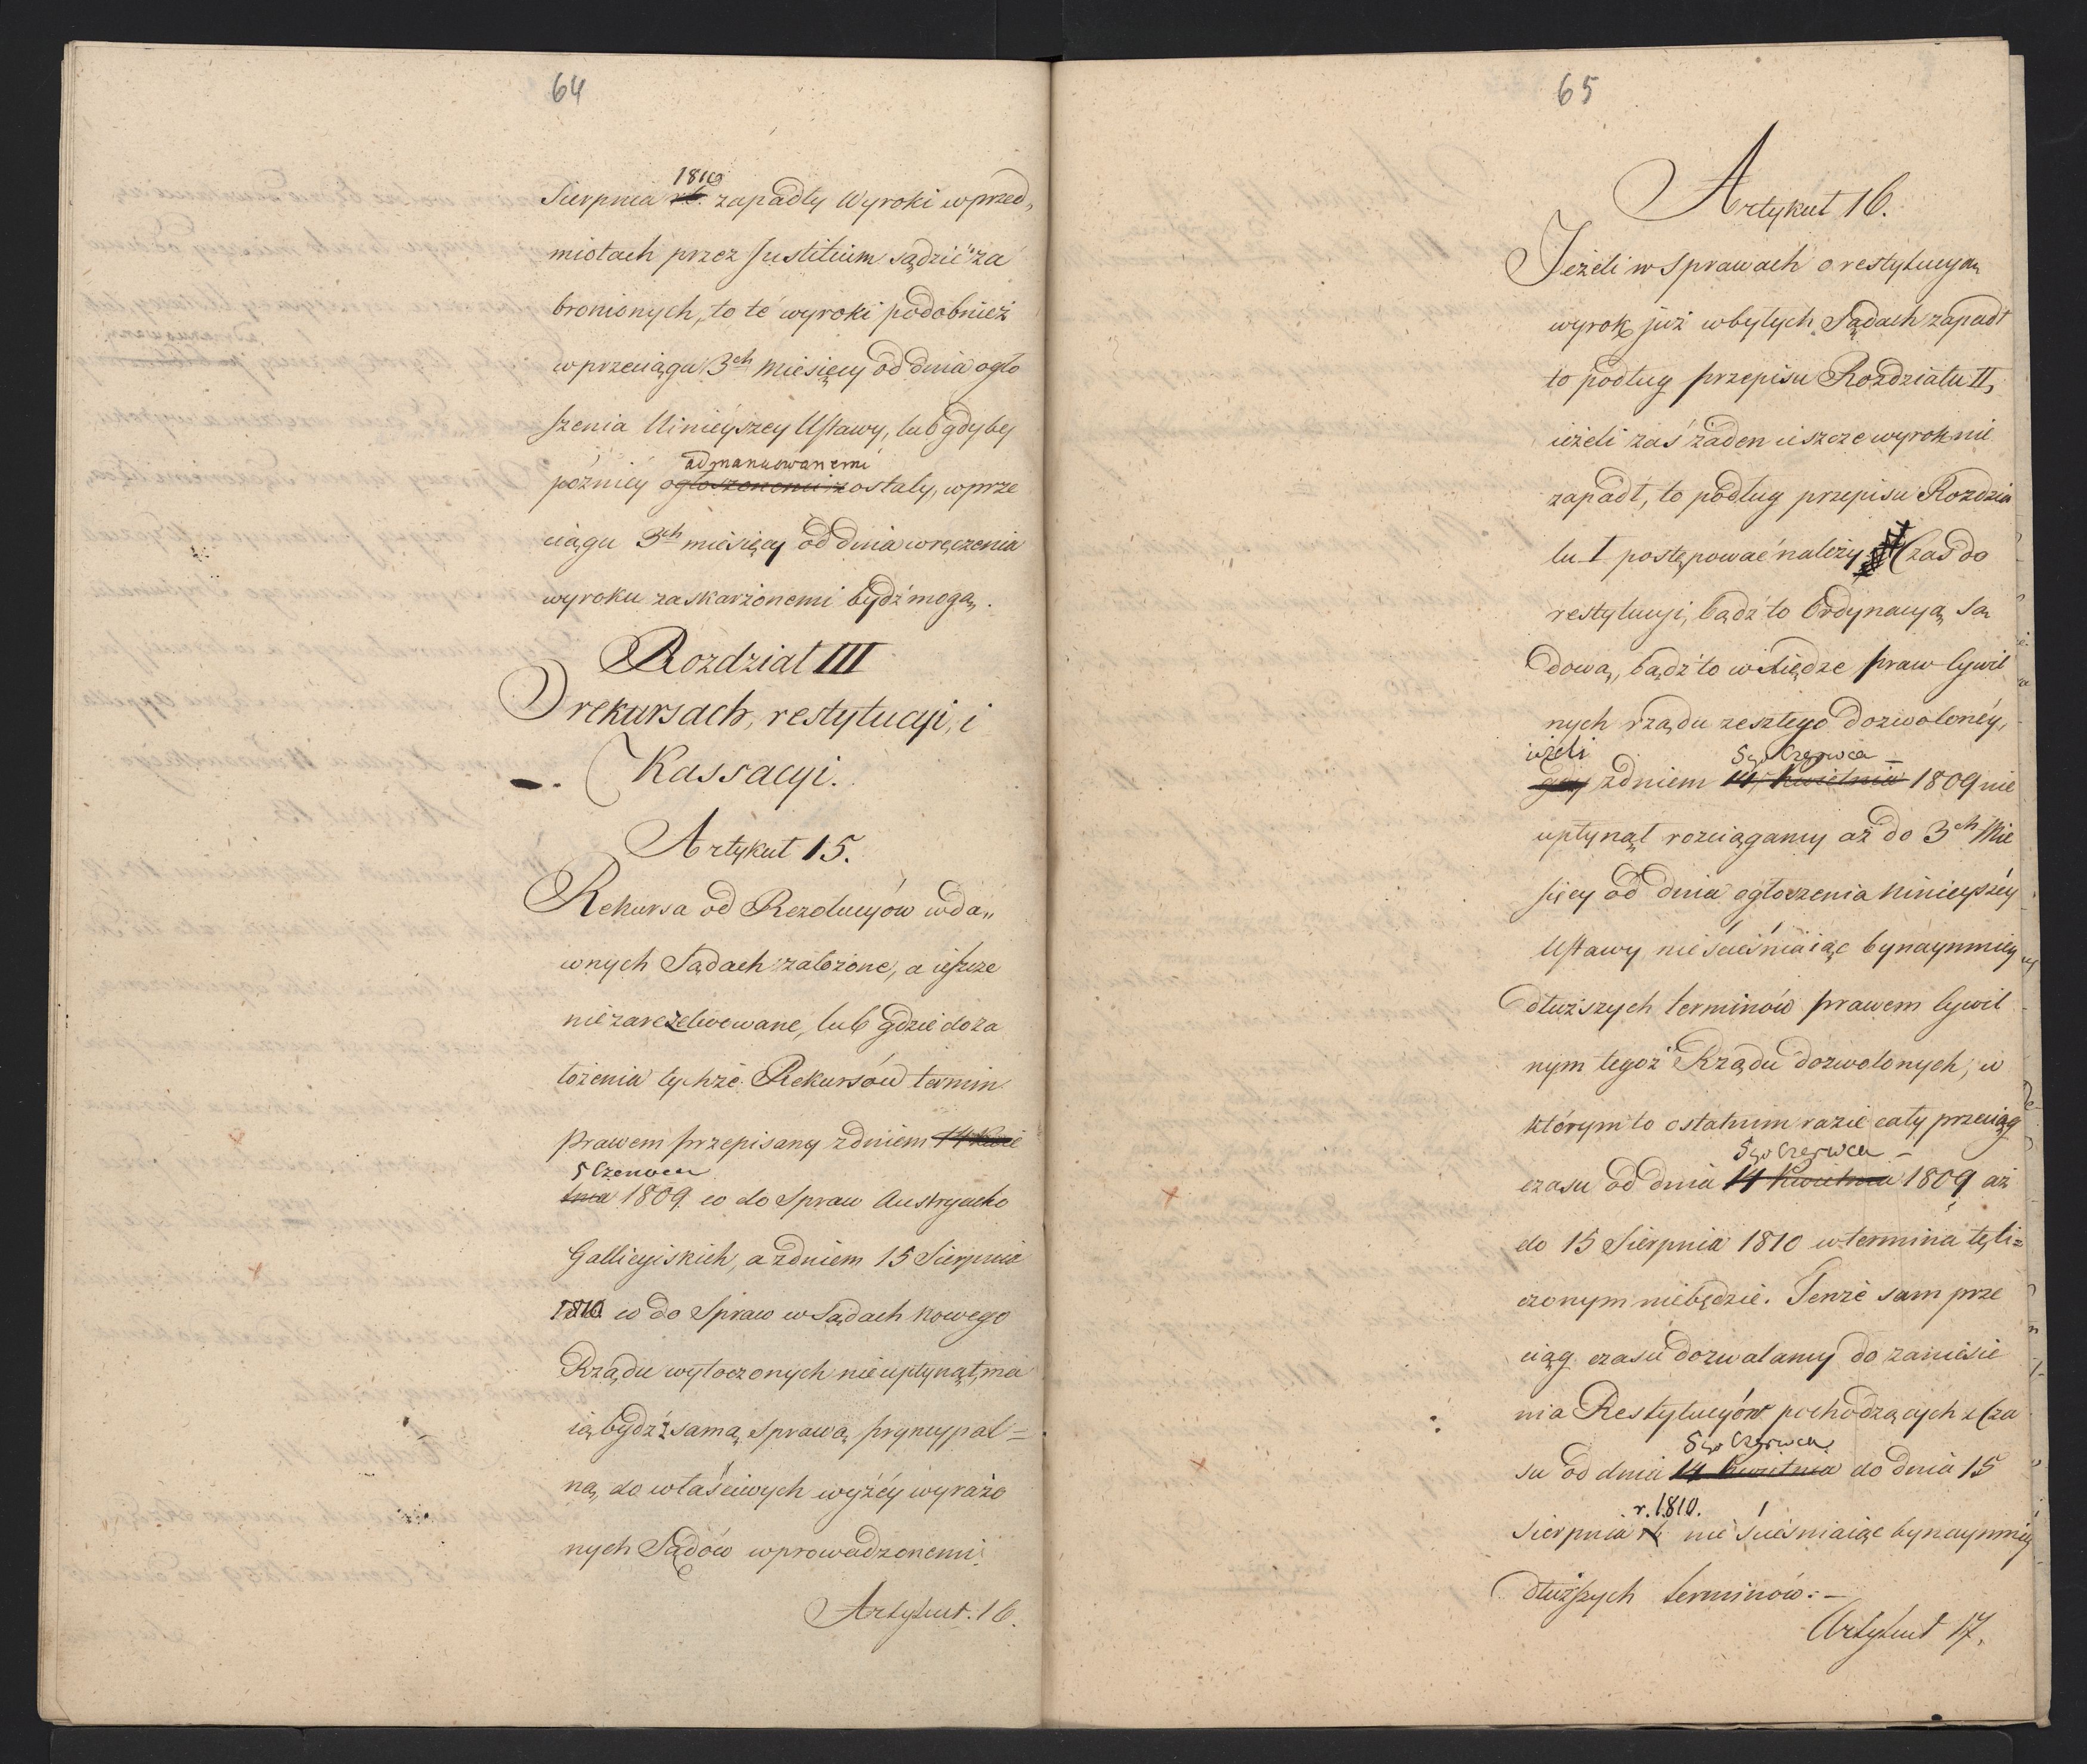 64
1810
Sierpnia rb. zapadły Wyroki w przed„
miotach przez Justitium sądzić za
bronionych, to te wyroki podobnież
w przeciągu 3ch Miesięcy od dnia ogło
szenia Ninieyszey Ustawy, lub gdyby
admanuowanemi
pózniey ogłoszonemi zostały, w prze
ciągu 3ch miesięcy od dnia wręczenia
wyroku zaskarżonemi bydź mogą.
Rozdział III
O rekursach, restytucyi, i
Kassacyi.
Artykuł 15.
Rekursa od Rezolucyów w da„
wnych Sądach założone, a ieszcze
niezarezolwowane, lub gdzie do za
łożenia tychże Rekursów termin
prawem przepisany z dniem 14 Kwie
5 Czerwca
tnia 1809. co do Spraw Austryacko
Gallicyiskich, a z dniem 15 Sierpnia
1810 co do Spraw w Sądach nowego
Rządu wytoczonych nieupłynął, ma
ią bydź z samą sprawą pryncypal=
ną, do właściwych wyżéy wyrażo
nych Sądów wprowadzonemi.
Artykuł. 16.
65
Artykuł 16.
Jeżeli w Sprawach o restytucyą
wyrok już w byłych Sądach zapadł
to podług przepisu Rozdziału II,
ieżeli zaś żaden ieszcze wyrok nie
zapadł, to podług przepisu Rozdzia
łu I postępować należy Czas do
restytucyi, bądź to Ordynacyą Są
dową, bądź to w Xiędze praw Cywil
nych rządu zeszłego dozwolonéy,
ieżeli 5go Czerwca
gdy z dniem 14 Kwietnia 1809 nie
upłynął rozciągamy aż do 3ch Mie
sięcy od dnia ogłoszenia Ninieyszéy
Ustawy nie ścieśniaiąc bynaymniey
dłuższych terminów prawem Cywil
nym tegoż Rządu dozwolonych, w
którym to ostatnim razie cały przeciąg
5go Czerwca
czasu od dnia 14 Kwietnia 1809 aż
do 15 Sierpnia 1810 w termina te li=
czonym niebędzie. Tenże sam prze
ciąg czasu dozwalamy do zaniesie
nia Restytucyów pochodzących z Cza
5go Czerwca
su od dnia 14 Kwietnia do dnia 15
r. 1810.
Sierpnia rb nie ścieśniaiąc bynaymniéy
dłuższych terminów: –
Artykuł 17.